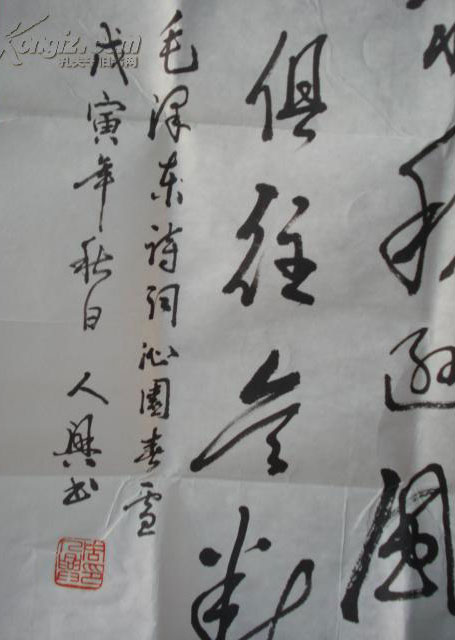 稍逊風
俱往矣数
毛泽东诗词沁園春雪
戊寅年秋日 人興书
Kongfz.com
孔夫子旧书网